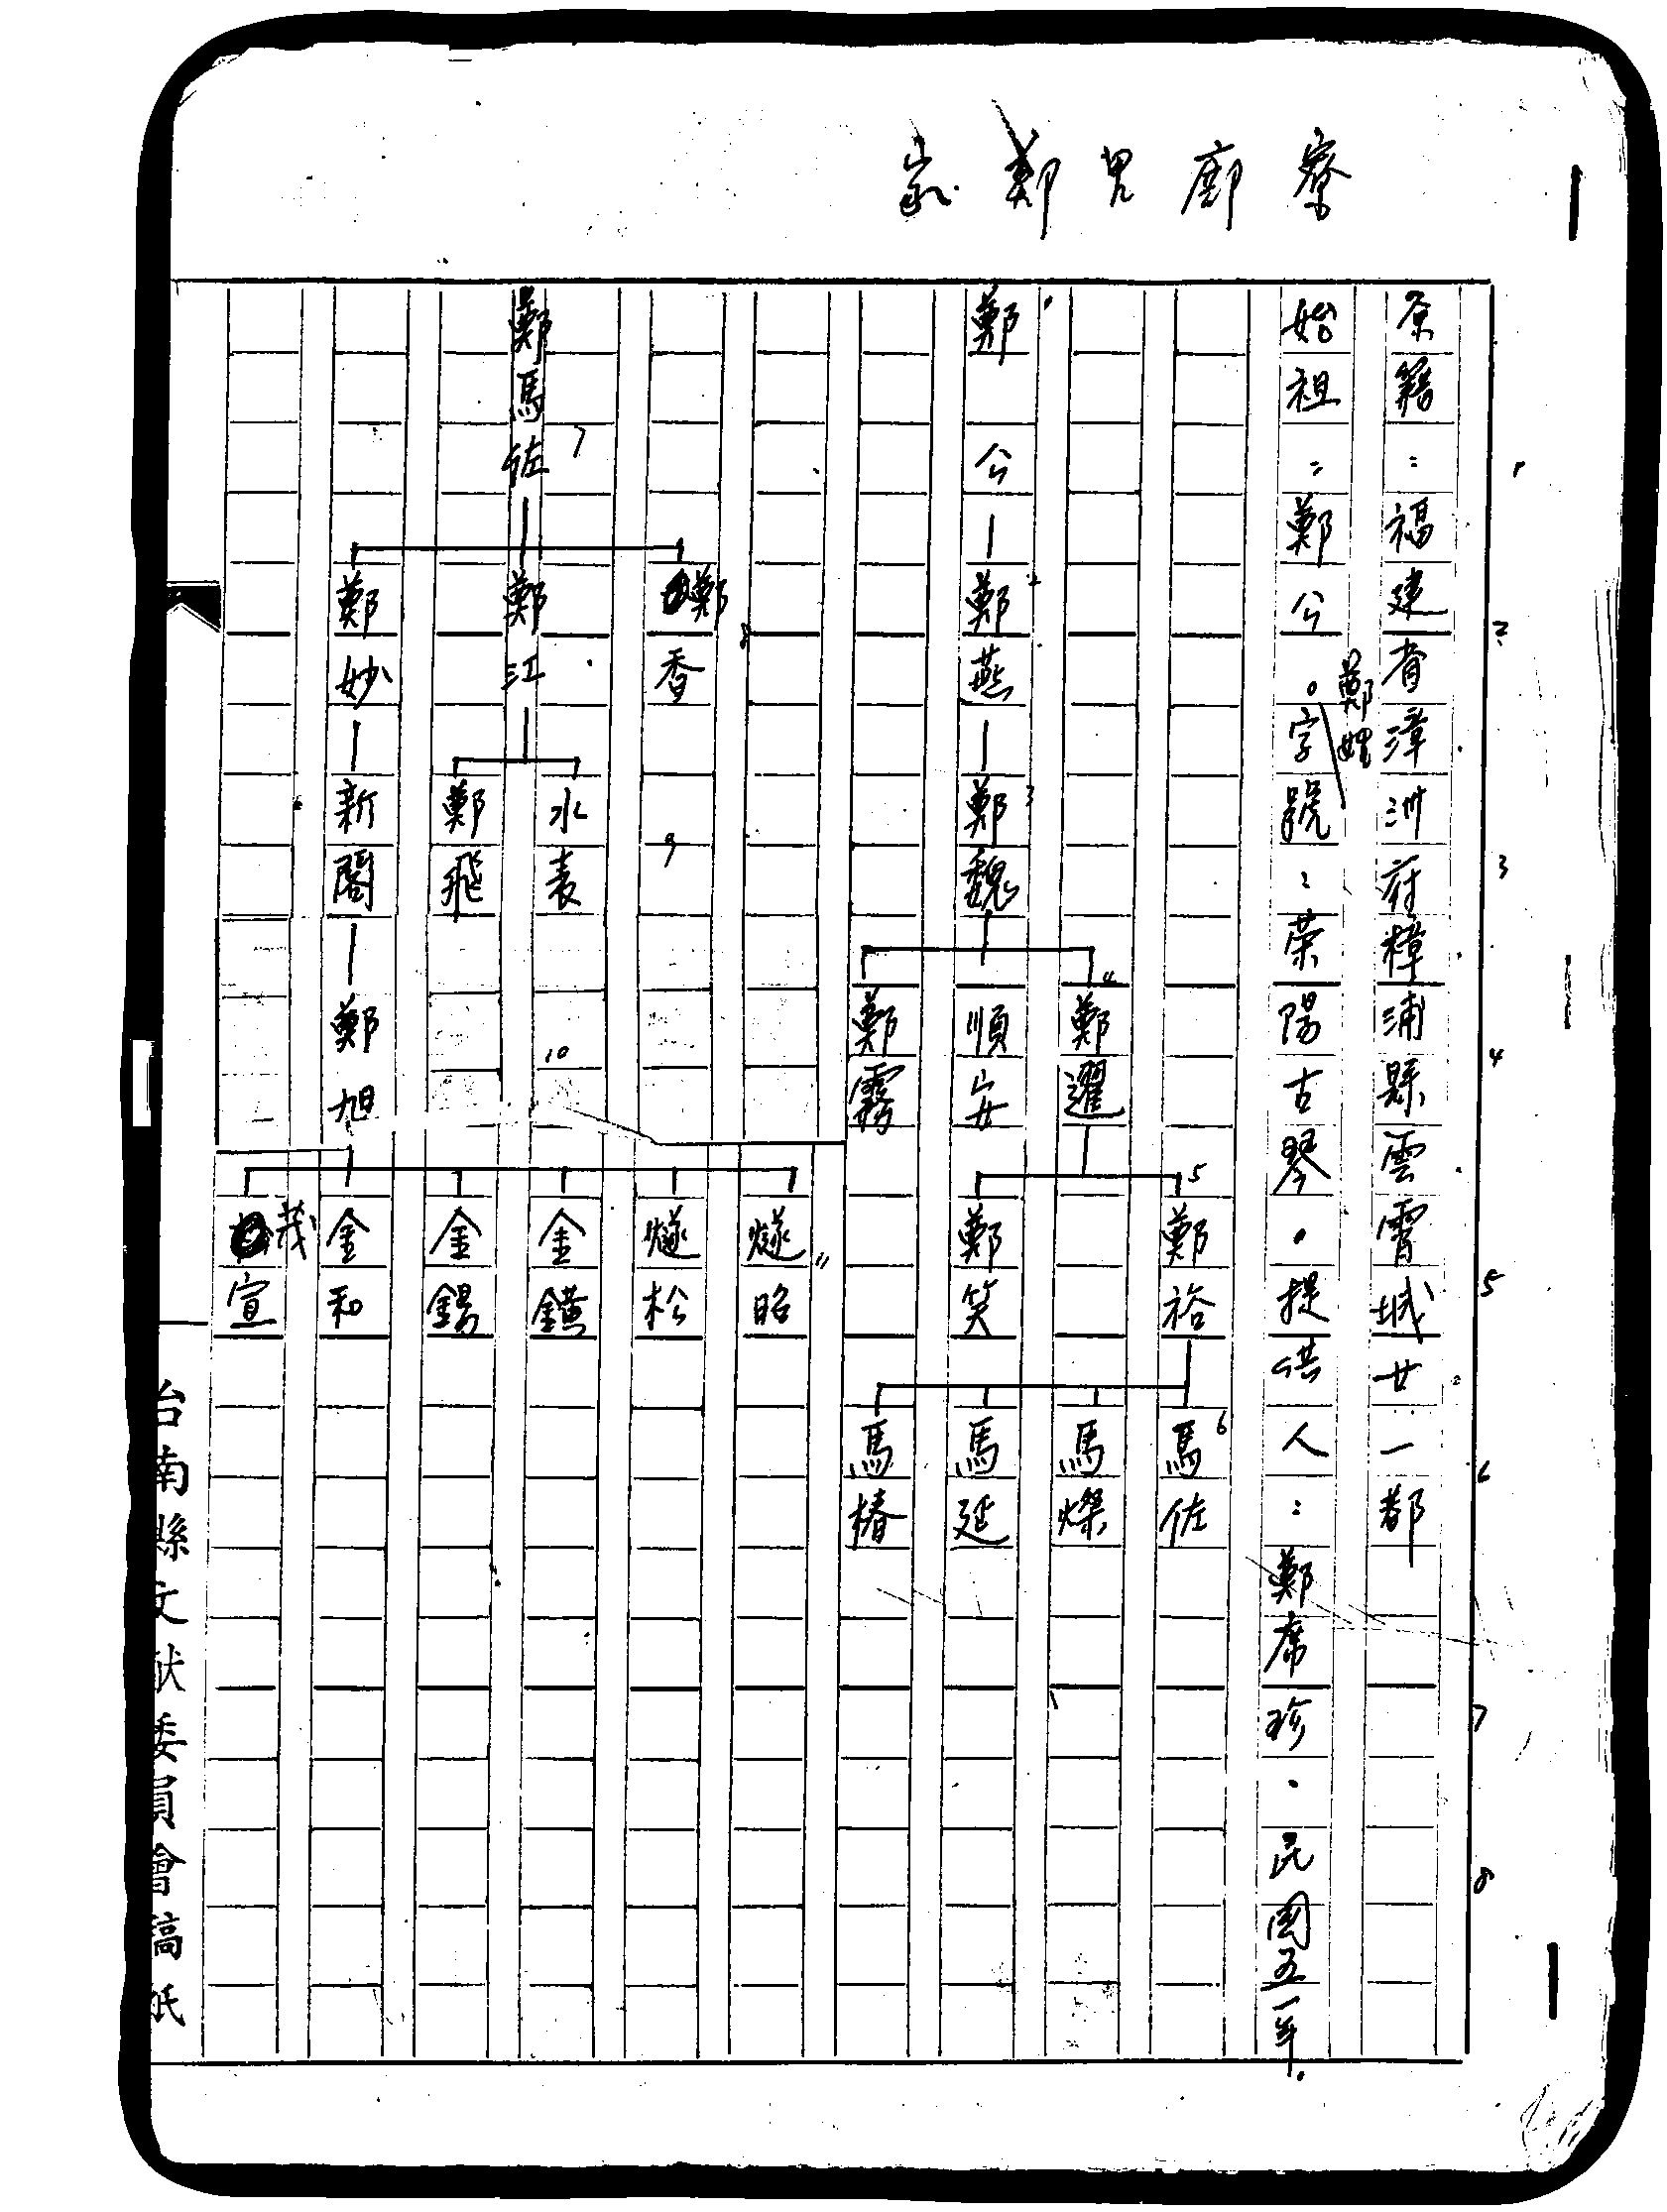 寮廍鄭家
原籍：福建省漳洲府樟浦縣雲霄城廿一都
鄭姓
始祖：鄭公。字號：荣陽古琴。提供人：鄭席珍．民國五一年．
鄭公—鄭燕—鄭魏
鄭躍 順安 鄭霧
鄭裕 鄭笑
馬佐 馬燦 馬延 馬椿
鄭馬佐
鄭香 鄭江 鄭妙
水表 鄭飛 新閣
鄭旭
燧昭 燧松 金鐄 金錫 金和 茂宣
1 2 3 4 5 6 7 8 9 10 11
1 2 3 4 5 6 7 8
台南縣文献委員會稿紙